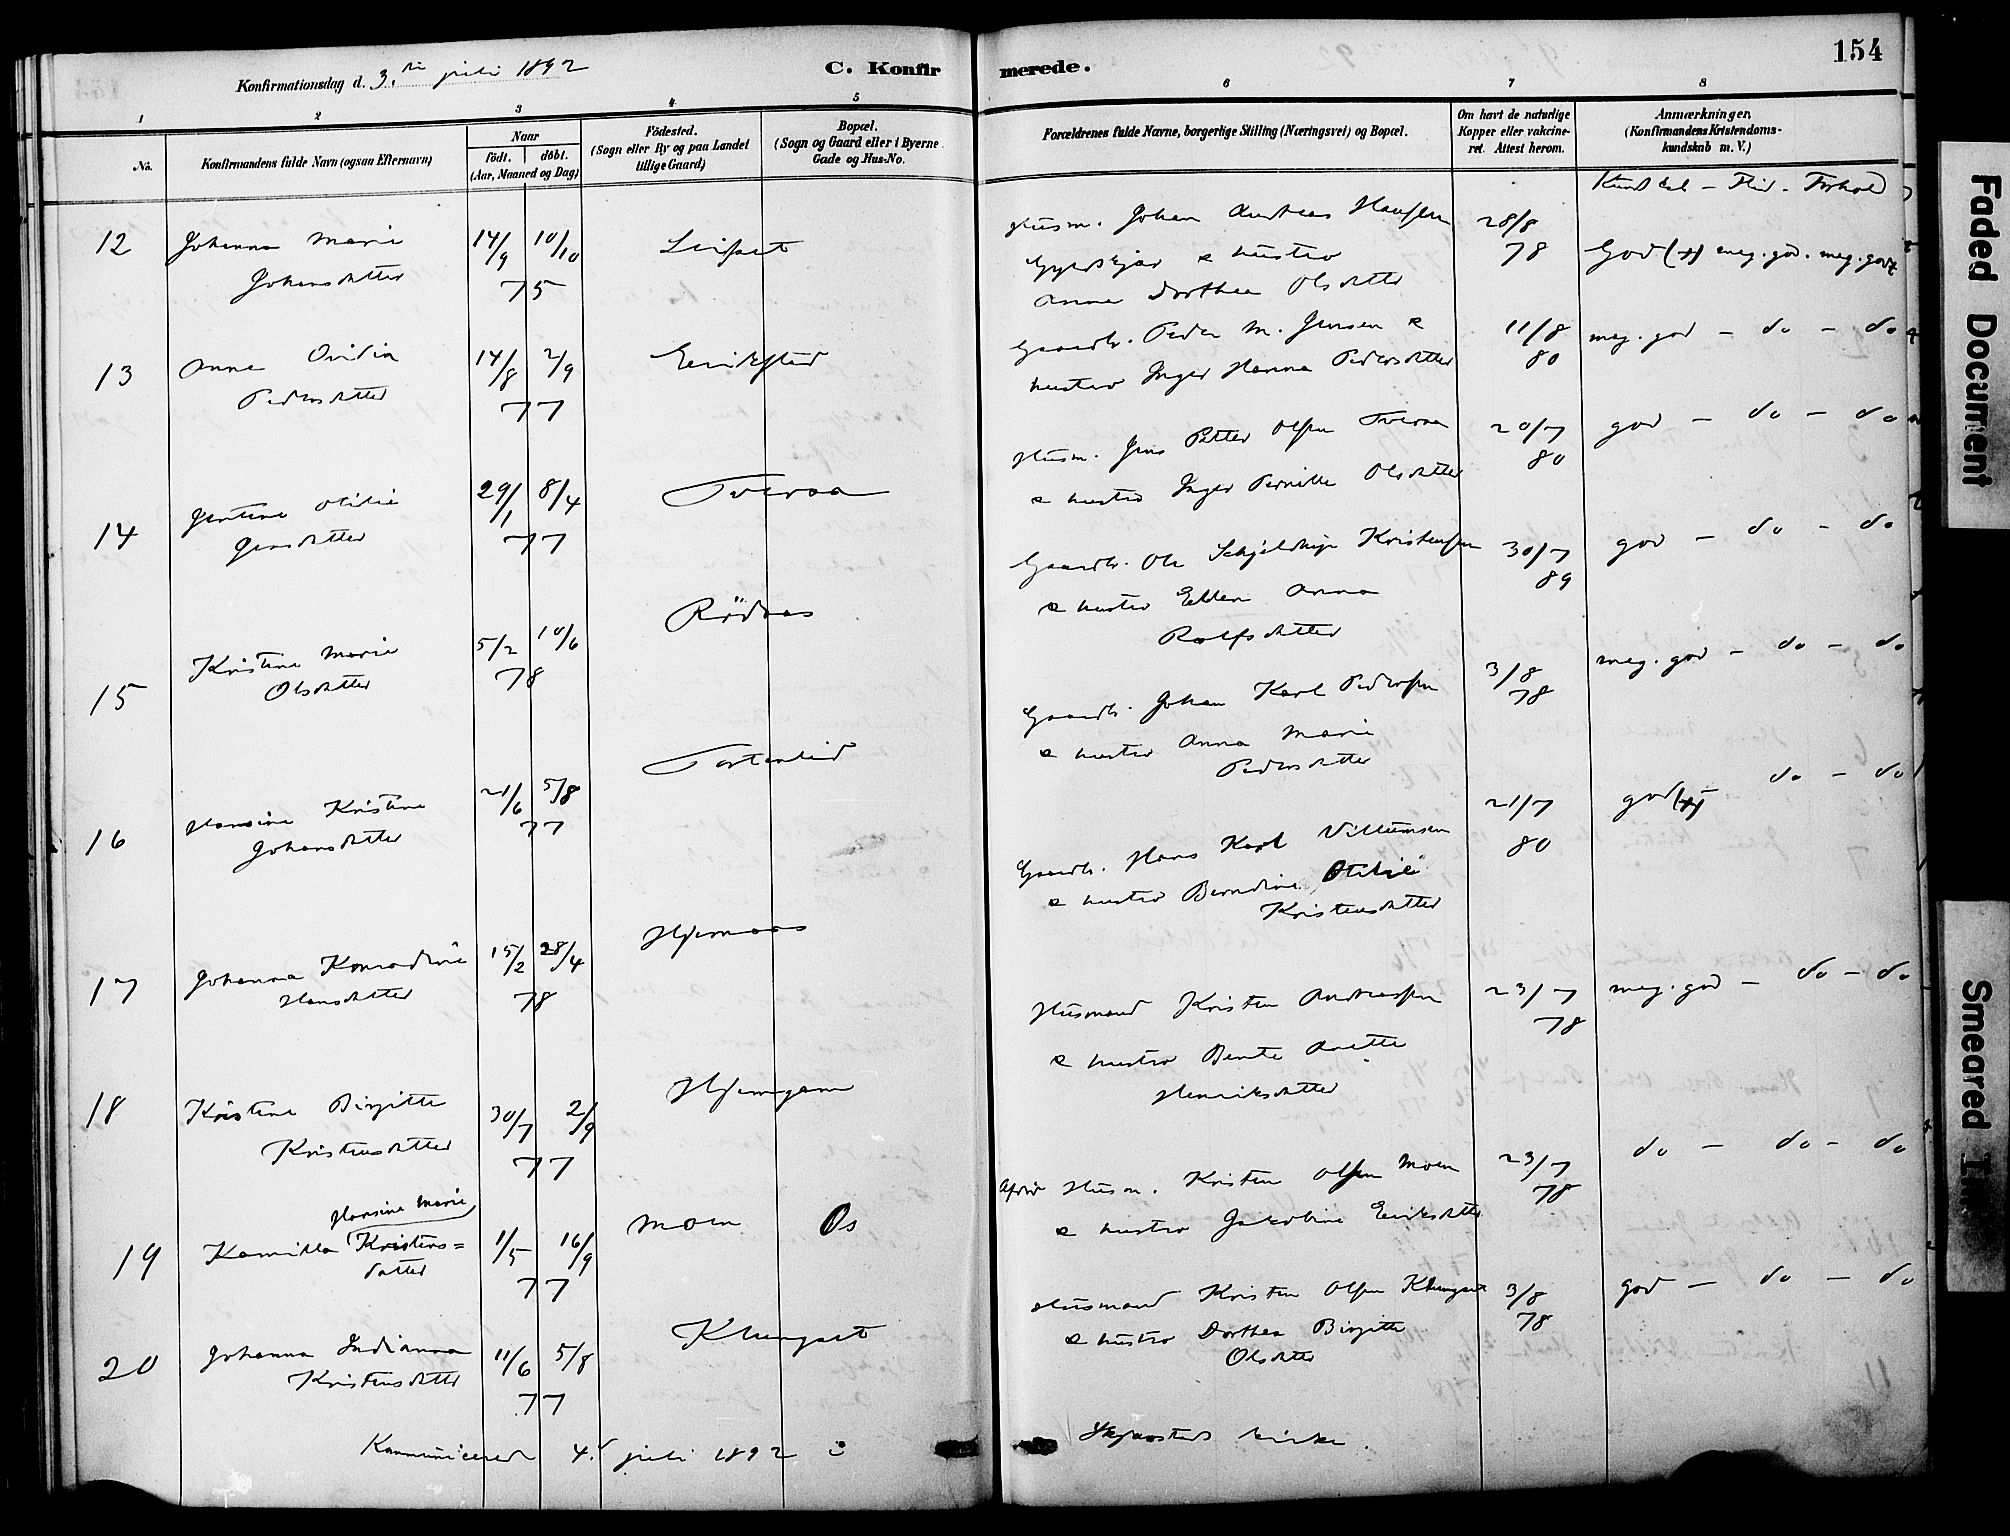 Konfirmationsdag d. 3. juli 1892
C. Konfir
merede.
154
1 2 3 4 5 6 7 8
No.
Konfirmandens fulde Navn (ogsaa Efternavn)
Naar
födt. döbt.
(Aar, Maaned og Dag)
Födested.
(Sogn eller By og paa Landet
tillige Gaard)
Bopæl.
(Sogn og Gaard eller i Byerne
Gade og Hus-No.
Forældrenes fulde Navne, borgerlige Stilling (Næringsvei) og Bopæl.
Om havt de naturlige
Kopper eller vakcine-
ret. Attest herom.
Anmærkninger,
(Konfirmandens Kristendoms-
kundskab m. V.)
Kundskab - Flid - Forhold
12 Johanna Marie
Johansdatter
14/9 10/10
75
Husm. Johan Andreas Hansen
& hustro
Anna Dorthea Olsdatter
28/8
78
God (+) meg. god. meg. godt
13 Anna Ovidia
Pedersdatter
14/8 2/9
77
Gaardb. Peder M. Jensen &
hustro Inger Hanna Pedersdatter
11/8
80
meg. god - do - do
14 Jentine Otilie
Jensdatter
29/1 8/4
77
Tveraa
Husm. Jens Petter Olsen Tveraa
& hustro Inger Pernille Olsdatter
20/7
80
god - do - do
15 Kristine Marie
Olsdatter
5/2 10/6
78
Rödaas
Gaardb. Ole Schjeldrup Kristensen
& hustro Ellen Anna
Rolfsdatter
30/7
89
god - do - do
16 Hansine Kristine
Johansdatter
21/6 5/8
77
Tortenlid
Gaardb. Johan Karl Pedersen
& hustro Anna Marie
Pedersdatter
3/8
78
meg. god - do - do
17 Johanna Konradine
Hansdatter
15/2 28/4
78
Hjemaas
Gaardb. Hans Karl Villumsen
& hustro Berndine Otelie
Kristensdatter
21/7
80
god (+) - do - do
18 Kristine Birgitte
Kristensdatter
30/7 2/9
77
Hjemgam
Husmand Kristen Andreassen
& hustro Bente Anette
Henriksdatter
23/7
78
meg. god - do - do
19 Kamilla Hansine Marie
Kristens=
datter
1/5 16/9
77
Moen Os
Husm. Kristen Olsen Moen
& hustro Jakobine Eriksdatter
23/7
78
do - do - do
20 Johanna Indianna
Kristensdatter
11/6 5/8
77
Klungset
Husmand Kristen Olsen Klungset
& hustro Dorthea Birgitte
Olsdatter
3/8
78
god - do - do
Kommuniceret 4. juli 1892 i
Skjerstads kirke.
Faded Document
Smeared Ink